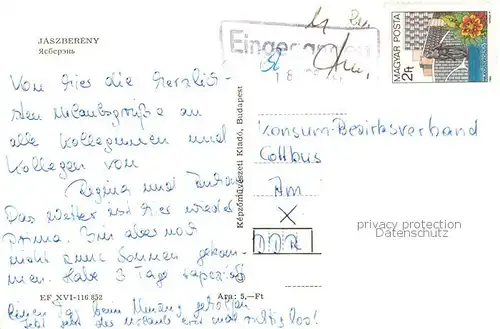 JASZBERENY
Ясберэнь
Eingegangen
MAGYAR POSTA
2Ft
Von hier die herzlich-
sten Urlaubsgrüße an
alle Kolleginnen und
Kollegen von
Regina und
Das Wetter ist hier wieder
prima. Bin aber noch
nicht zum Sonnen gekom-
men. Habe 3 Tage tapeziert
einen Tag beim Umzug geholfen
Jetzt geht der Urlaub erst mal richtig los!
Képzőművészeti Kiadó, Budapest
Konsum-Bezirksverband
Cottbus
Am
X
DDR
privacy protection
Datenschutz
EF XVI-116 852
Ára: 5,-Ft